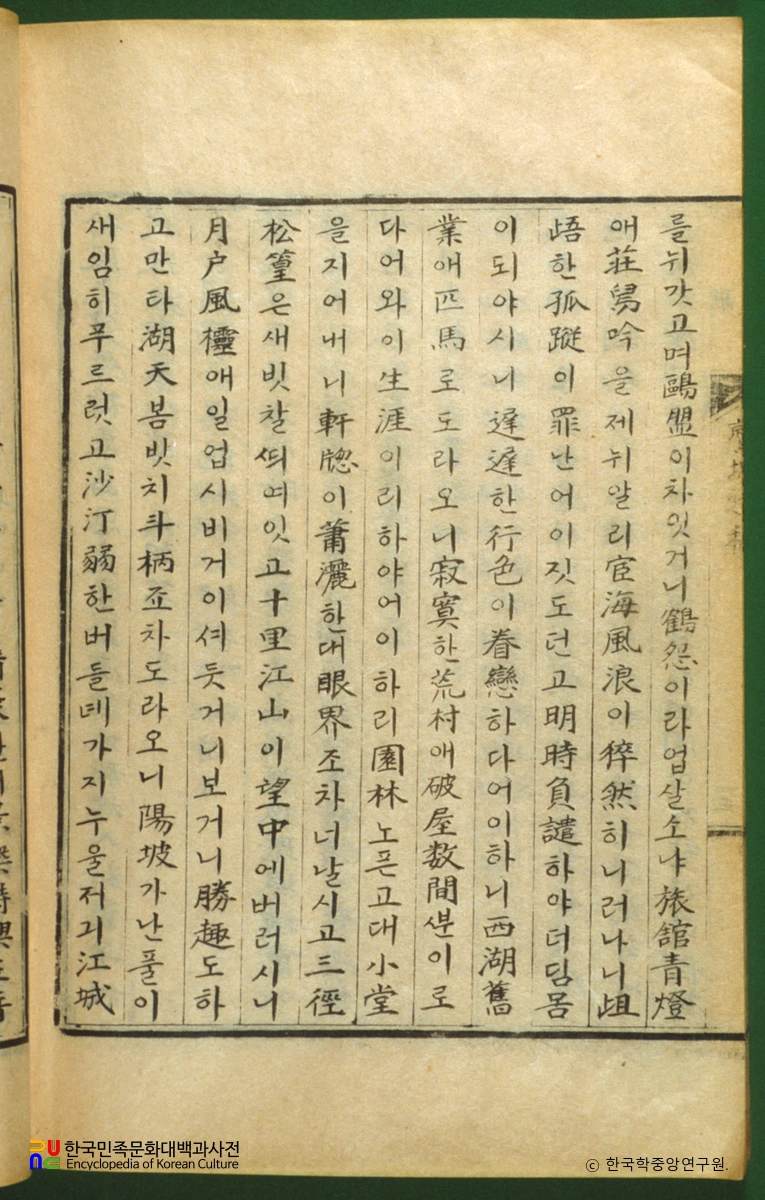 를뉘갓고며鷗盟이차잇거니鶴怨이라업살소냐旅舘青燈
애莊舃吟을제뉘알리宦海風浪이猝然히니러나니齟
齬한孤蹤이罪난어이짓도던고明時負譴하야더딤몸
이되야시니遲遲한行色이眷戀하다어이하니西湖舊
業애匹馬로도라오니寂寞한荒村애破屋数間뿐이로
다어와이生涯이리하야어이하리園林노픈고대小堂
을지어버니軒牕이蕭灑한대眼界조차너날시고三徑
松篁은새빗찰띄여잇고十里江山이望中에버러시니
月户風欞애일업시비거이셔듯거니보거니勝趣도하
고만타湖天봄빗치斗柄죠차도라오니陽坡가난풀이
새임히푸르럿고沙汀弱한버들녜가지누울저긔江城
한국민족문화대백과사전
Encyclopedia of Korean Culture
ⓒ 한국학중앙연구원.